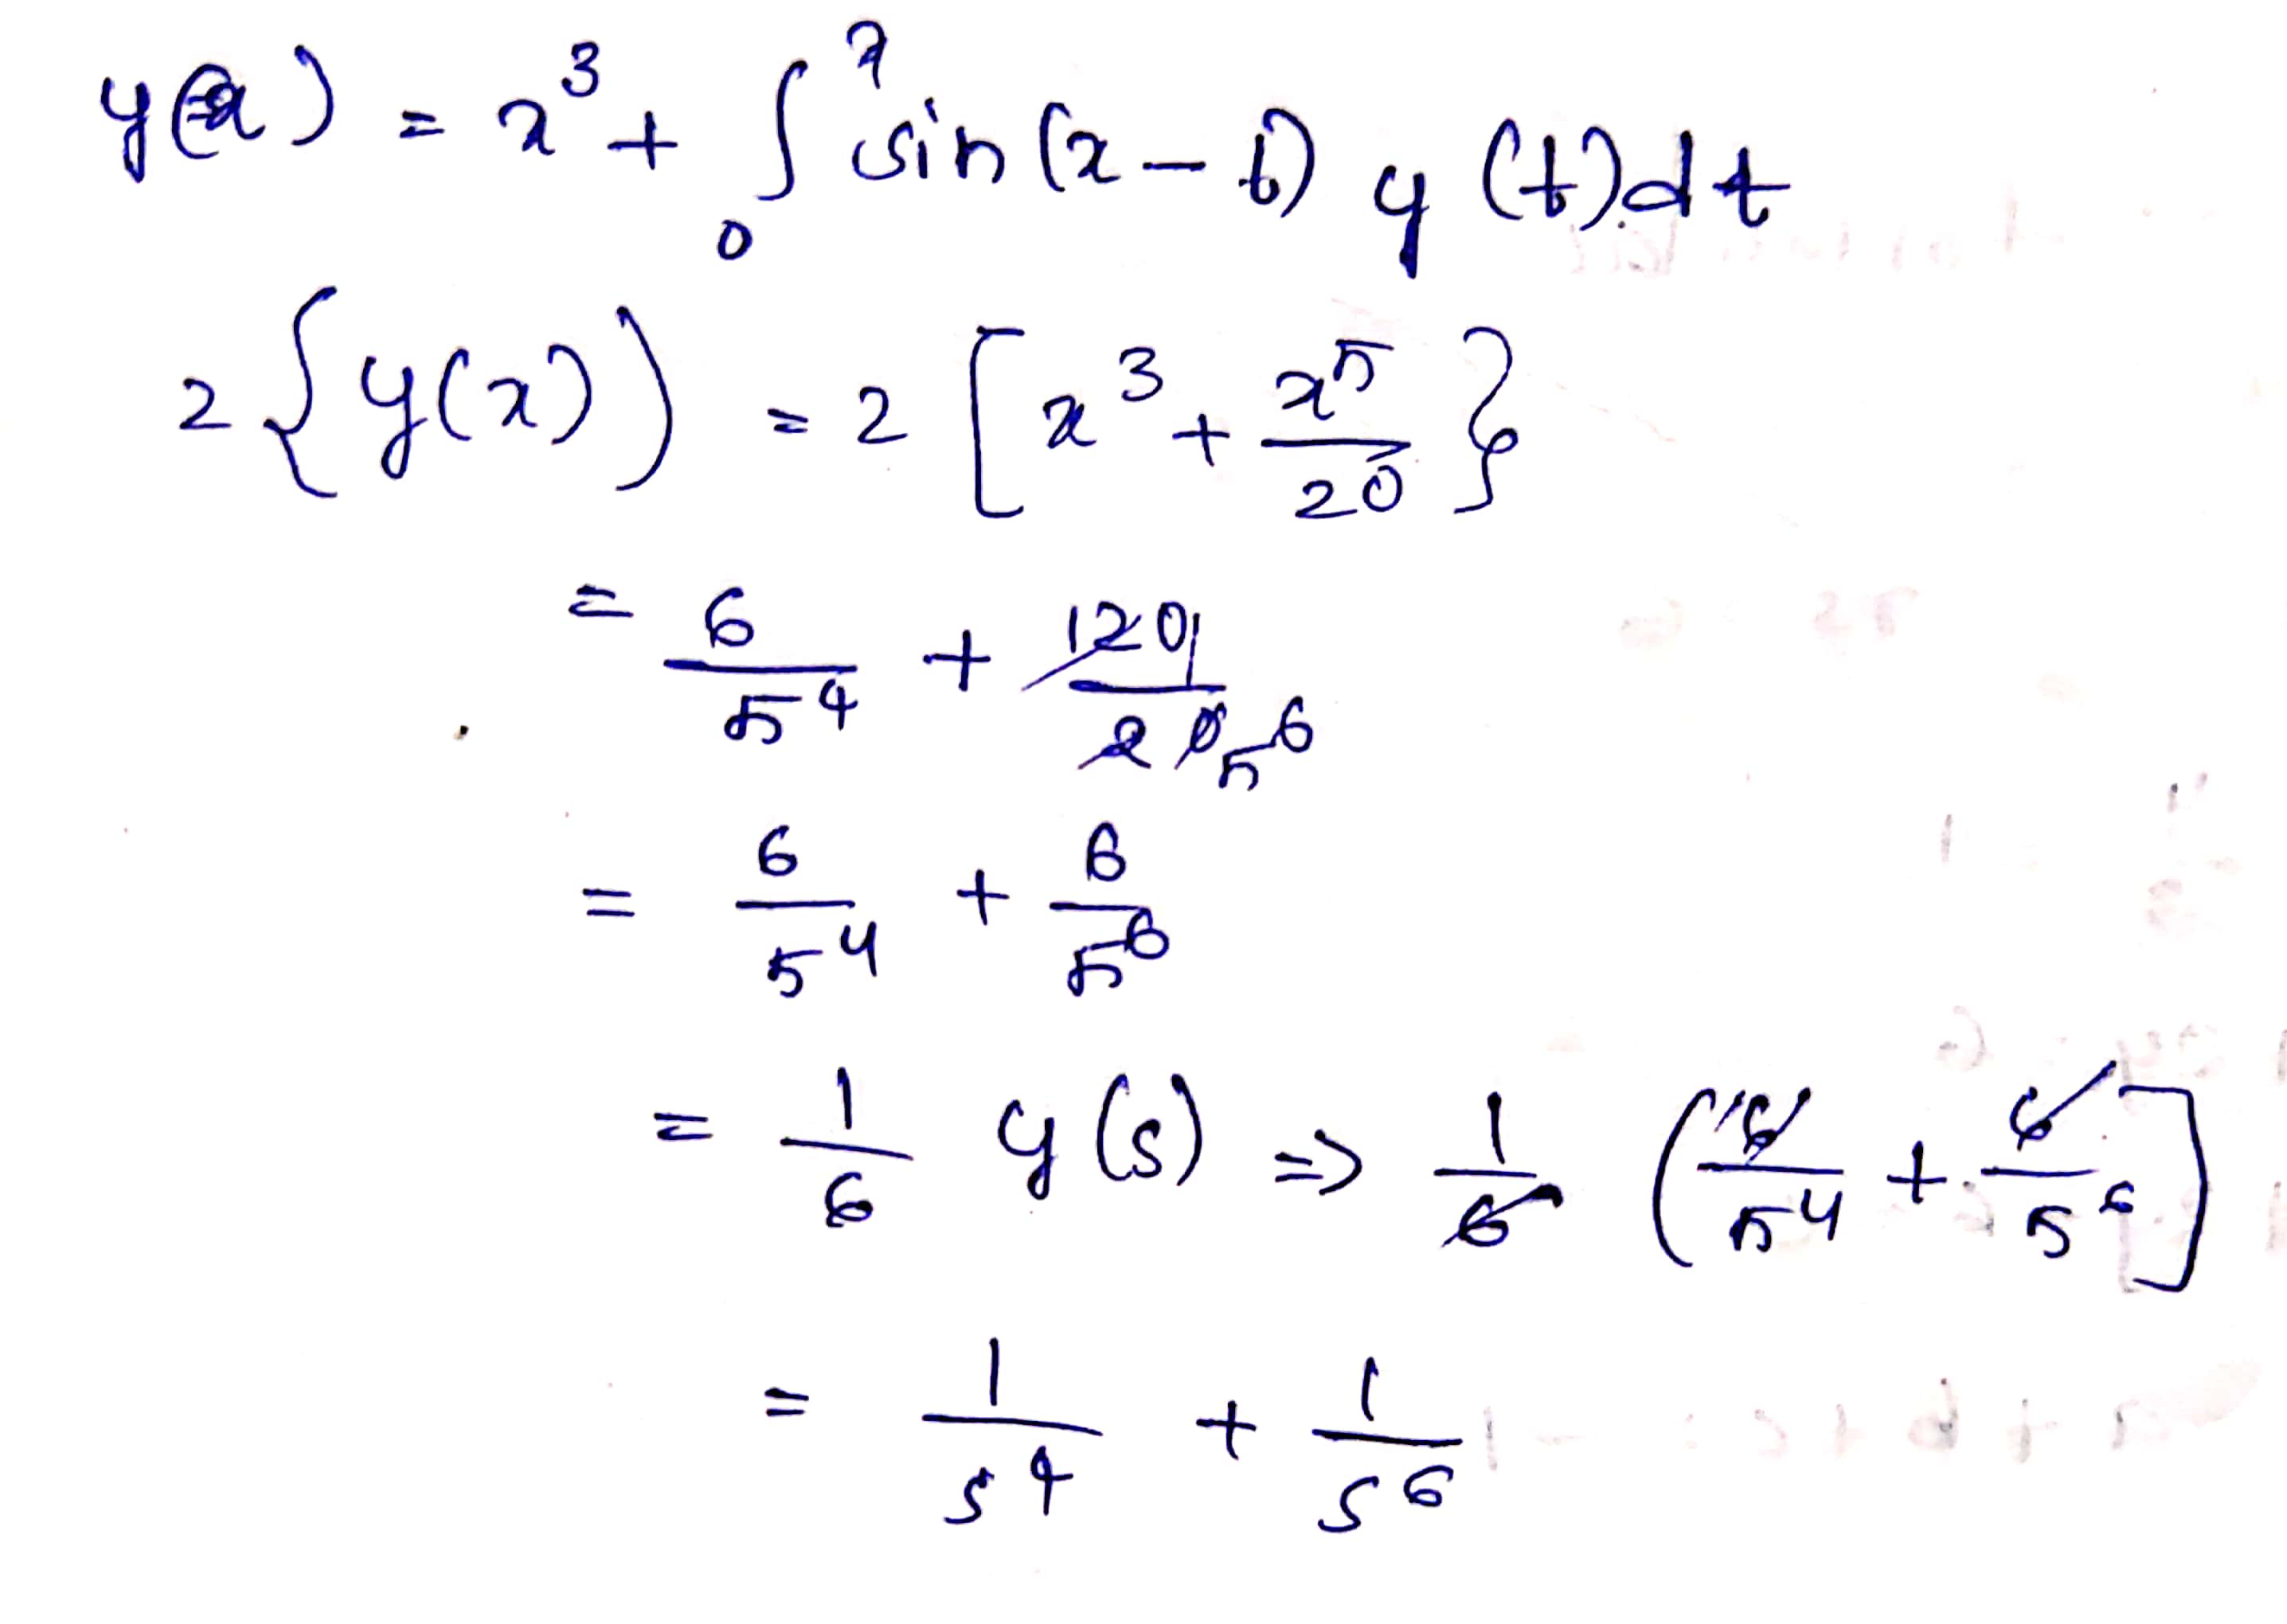 y(x) = x³ + ∫₀ˣ sin(x - t) y(t)dt
2{y(x)) = 2[x³ + x⁵/20}
= 6/5⁴ + 120/20 5⁶
= 6/5⁴ + 6/5⁶
= 1/6 y(s) => 1/6 (6/5⁴ + 6/5⁶]
= 1/s⁴ + 1/s⁶